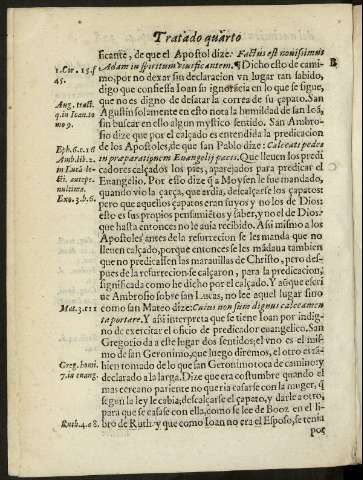 Tratado quarto
ficante, de que el Apostol dize: Factus est nouissimus
Adam in spiritum viuificantem. ¶ Dicho esto de cami-
mo, por no dexar sin declaracion vn lugar tan sabido,
digo que confiessa Ioan su ignorācia en lo que se sigue,
que no es digno de desatar la correa de su çapato. San
Agustin solamente en esto nota la humildad de san Ioā,
sin buscar en ello algun mystico sentido. San Ambro-
sio dize que por el calçado es entendida la predicacion
de los Apostoles, de que san Pablo dize: Calceati pedes
in præparationem Euangelij pacis. Que lleuen los predi
cadores calçados los pies, aparejados para predicar el
Euangelio. Por esto dize q̃ a Moysen le fue mandado,
quando vio la çarça, que ardia, descalçarse los çapatos:
pero que aquellos çapatos eran suyos y no los de Dios:
esto es sus propios pensamiētos y saber, y no el de Dios:
que hasta entonces no le auia recibido. Assi mismo a los
Apostoles antes de la resurrection se les manda que no
lleuen calçado, porque entonces se les mādaua tambien
que no predicassen las marauillas de Christo, pero des-
pues de la resurrection se calçaron, para la predicacion,
significada como he dicho por el calçado. Y aũque escri
ue Ambrosio sobre san Lucas, no lee aquel lugar sino
como san Mateo dize: Cuius non sum dignus calceamen
ta portare. Y assi interpreta que se tiene Ioan por indig-
no de exercitar el oficio de predicador euangelico. San
Gregorio da a este lugar dos sentidos; el vno es el mis-
mo de san Geronimo, que luego diremos, el otro es tā-
bien tomado de lo que san Geronimo toca de camino: y
declarado a la larga. Dize que era costumbre quando el
mas cercano pariente no queria casarse con la muger, q̃
segun la ley le cabia; descalçarse el çapato, y darle a otro,
para que se casasse con ella, como se lee de Booz en el li-
bro de Ruth: y que como Ioan no era el Esposo, se tenia
por
B
1. Cor. 15. f
45.
Aug. tract.
in Ioan. to
mo 9.
Eph. 6. c. 16
Amb. lib. 2.
in Lucā
penultima.
Exo. 3. b. 6.
Mat. 3. c. 11
Greg. homi.
7. in euang.
Ruth. 4. a 8.